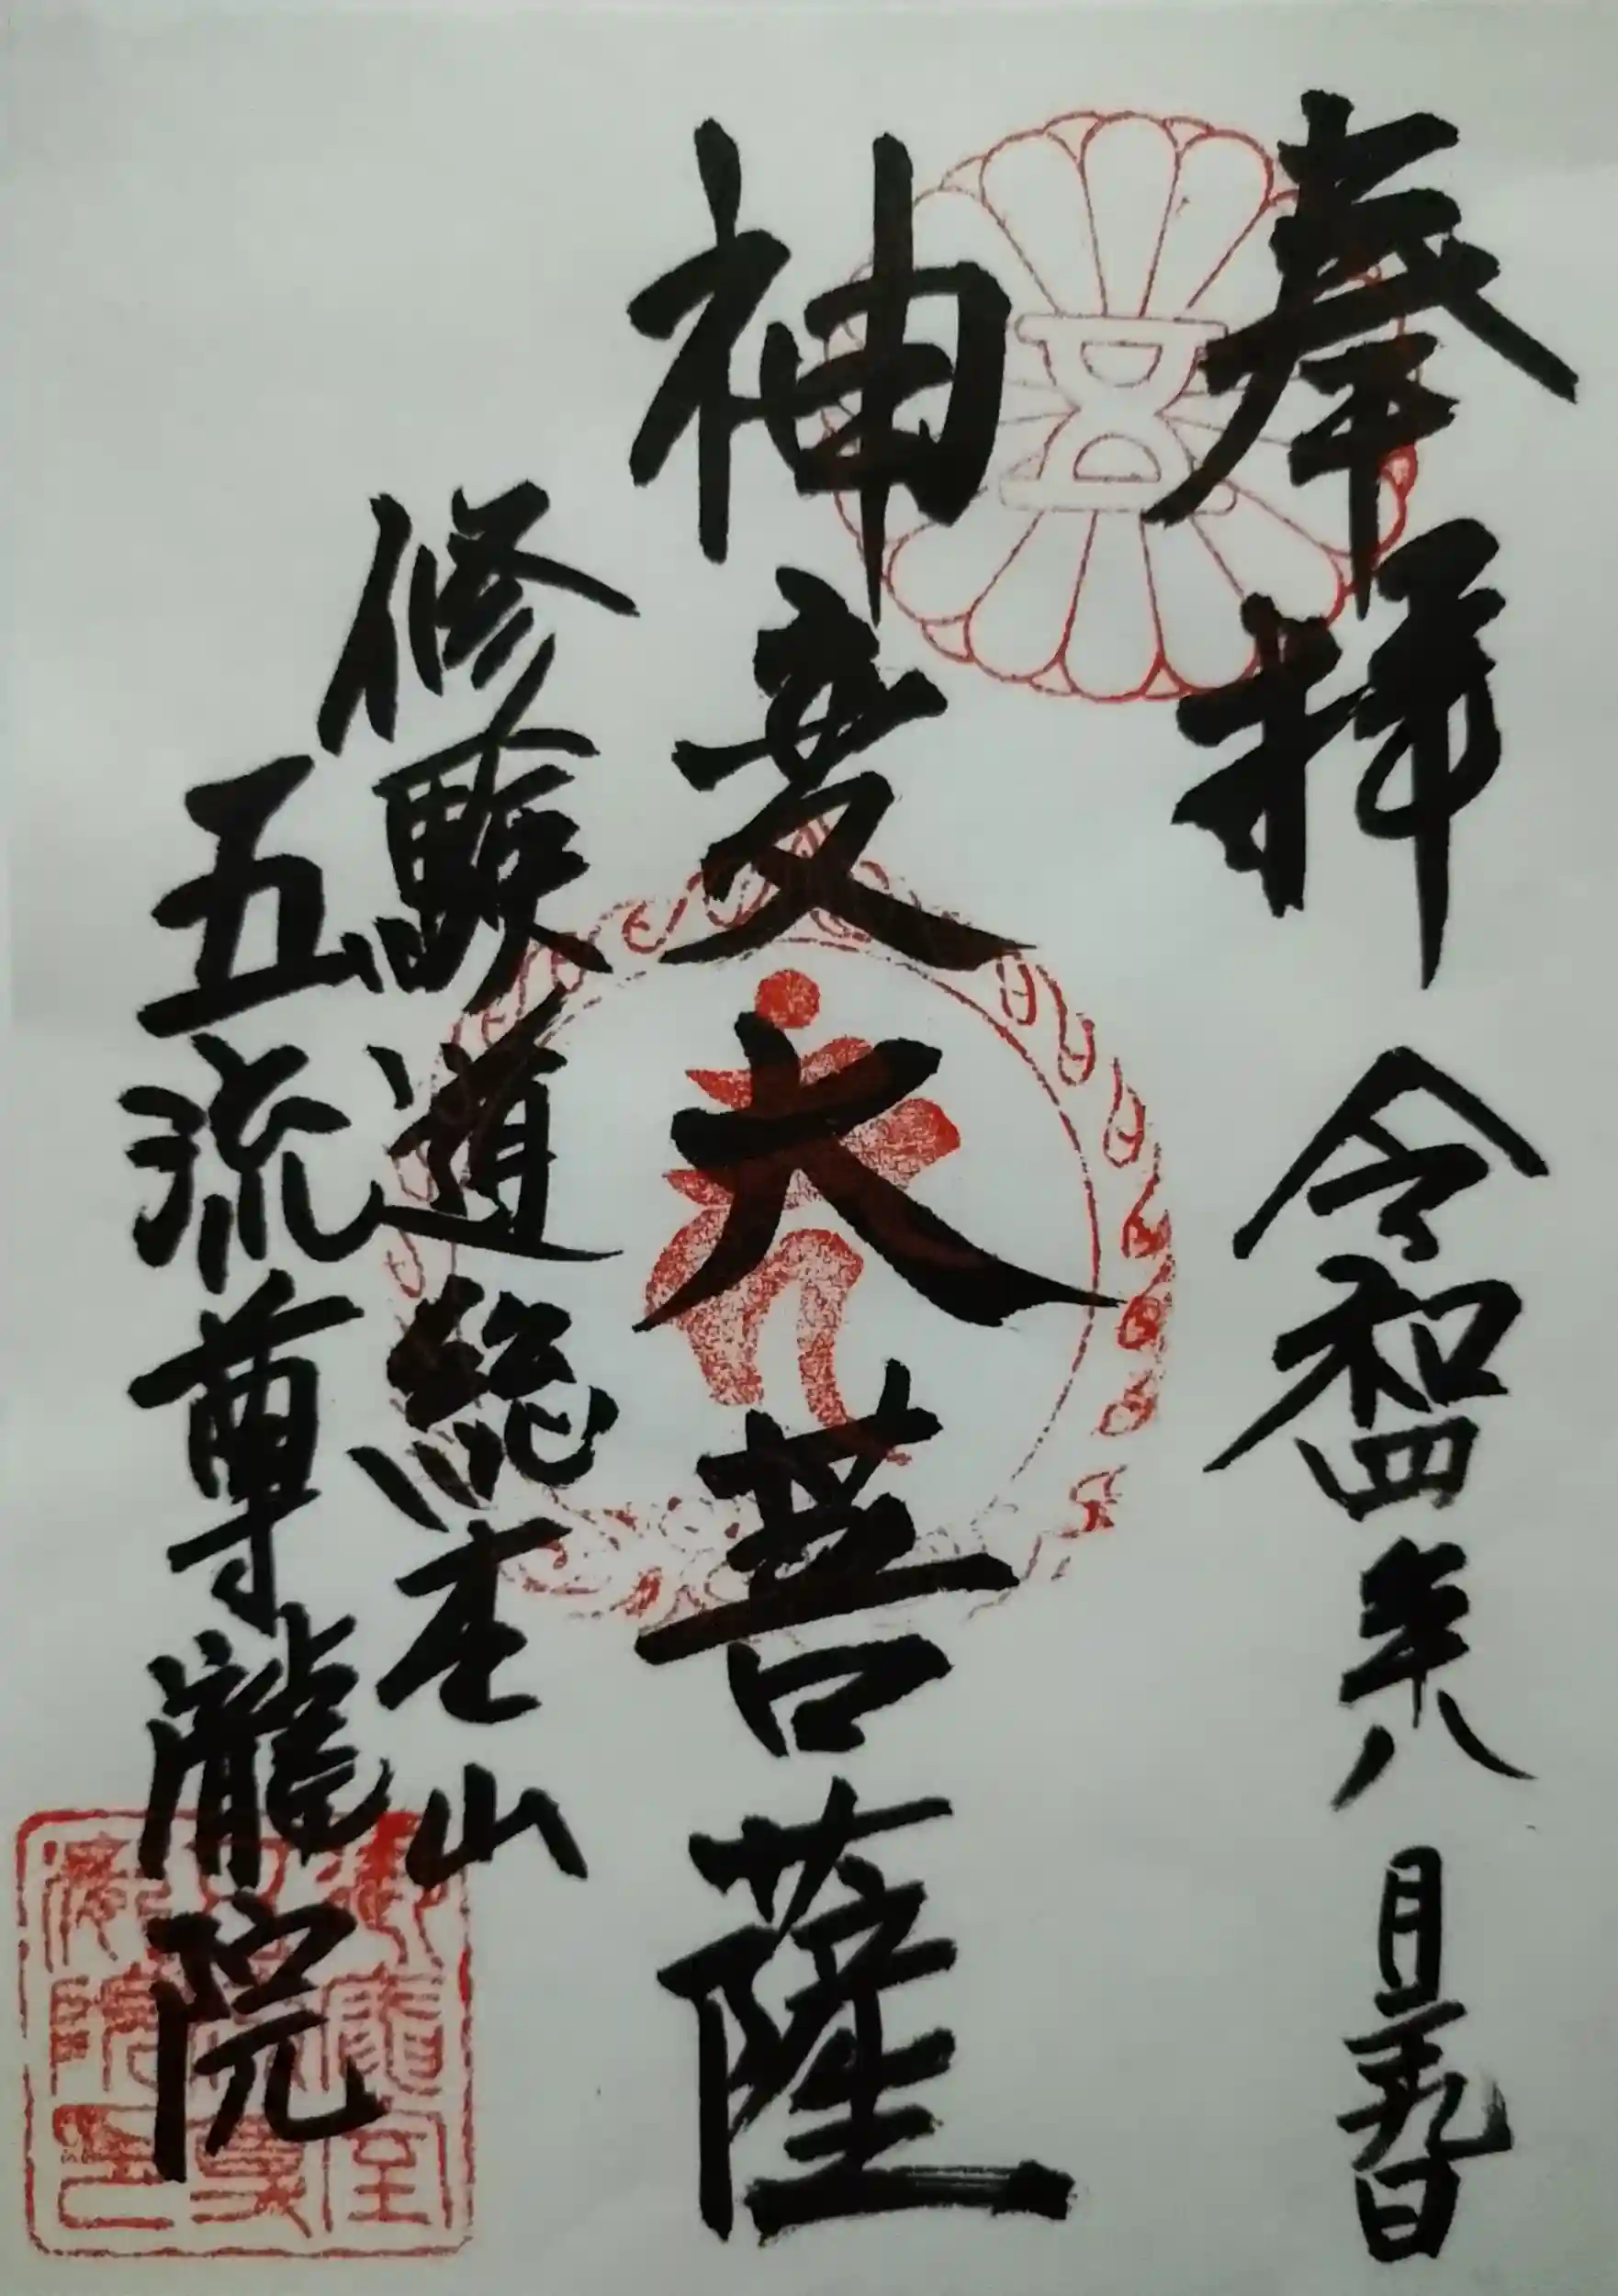 奉拝 令和四年八月二十九日
神変大菩薩
修験道総本山
五流尊瀧院